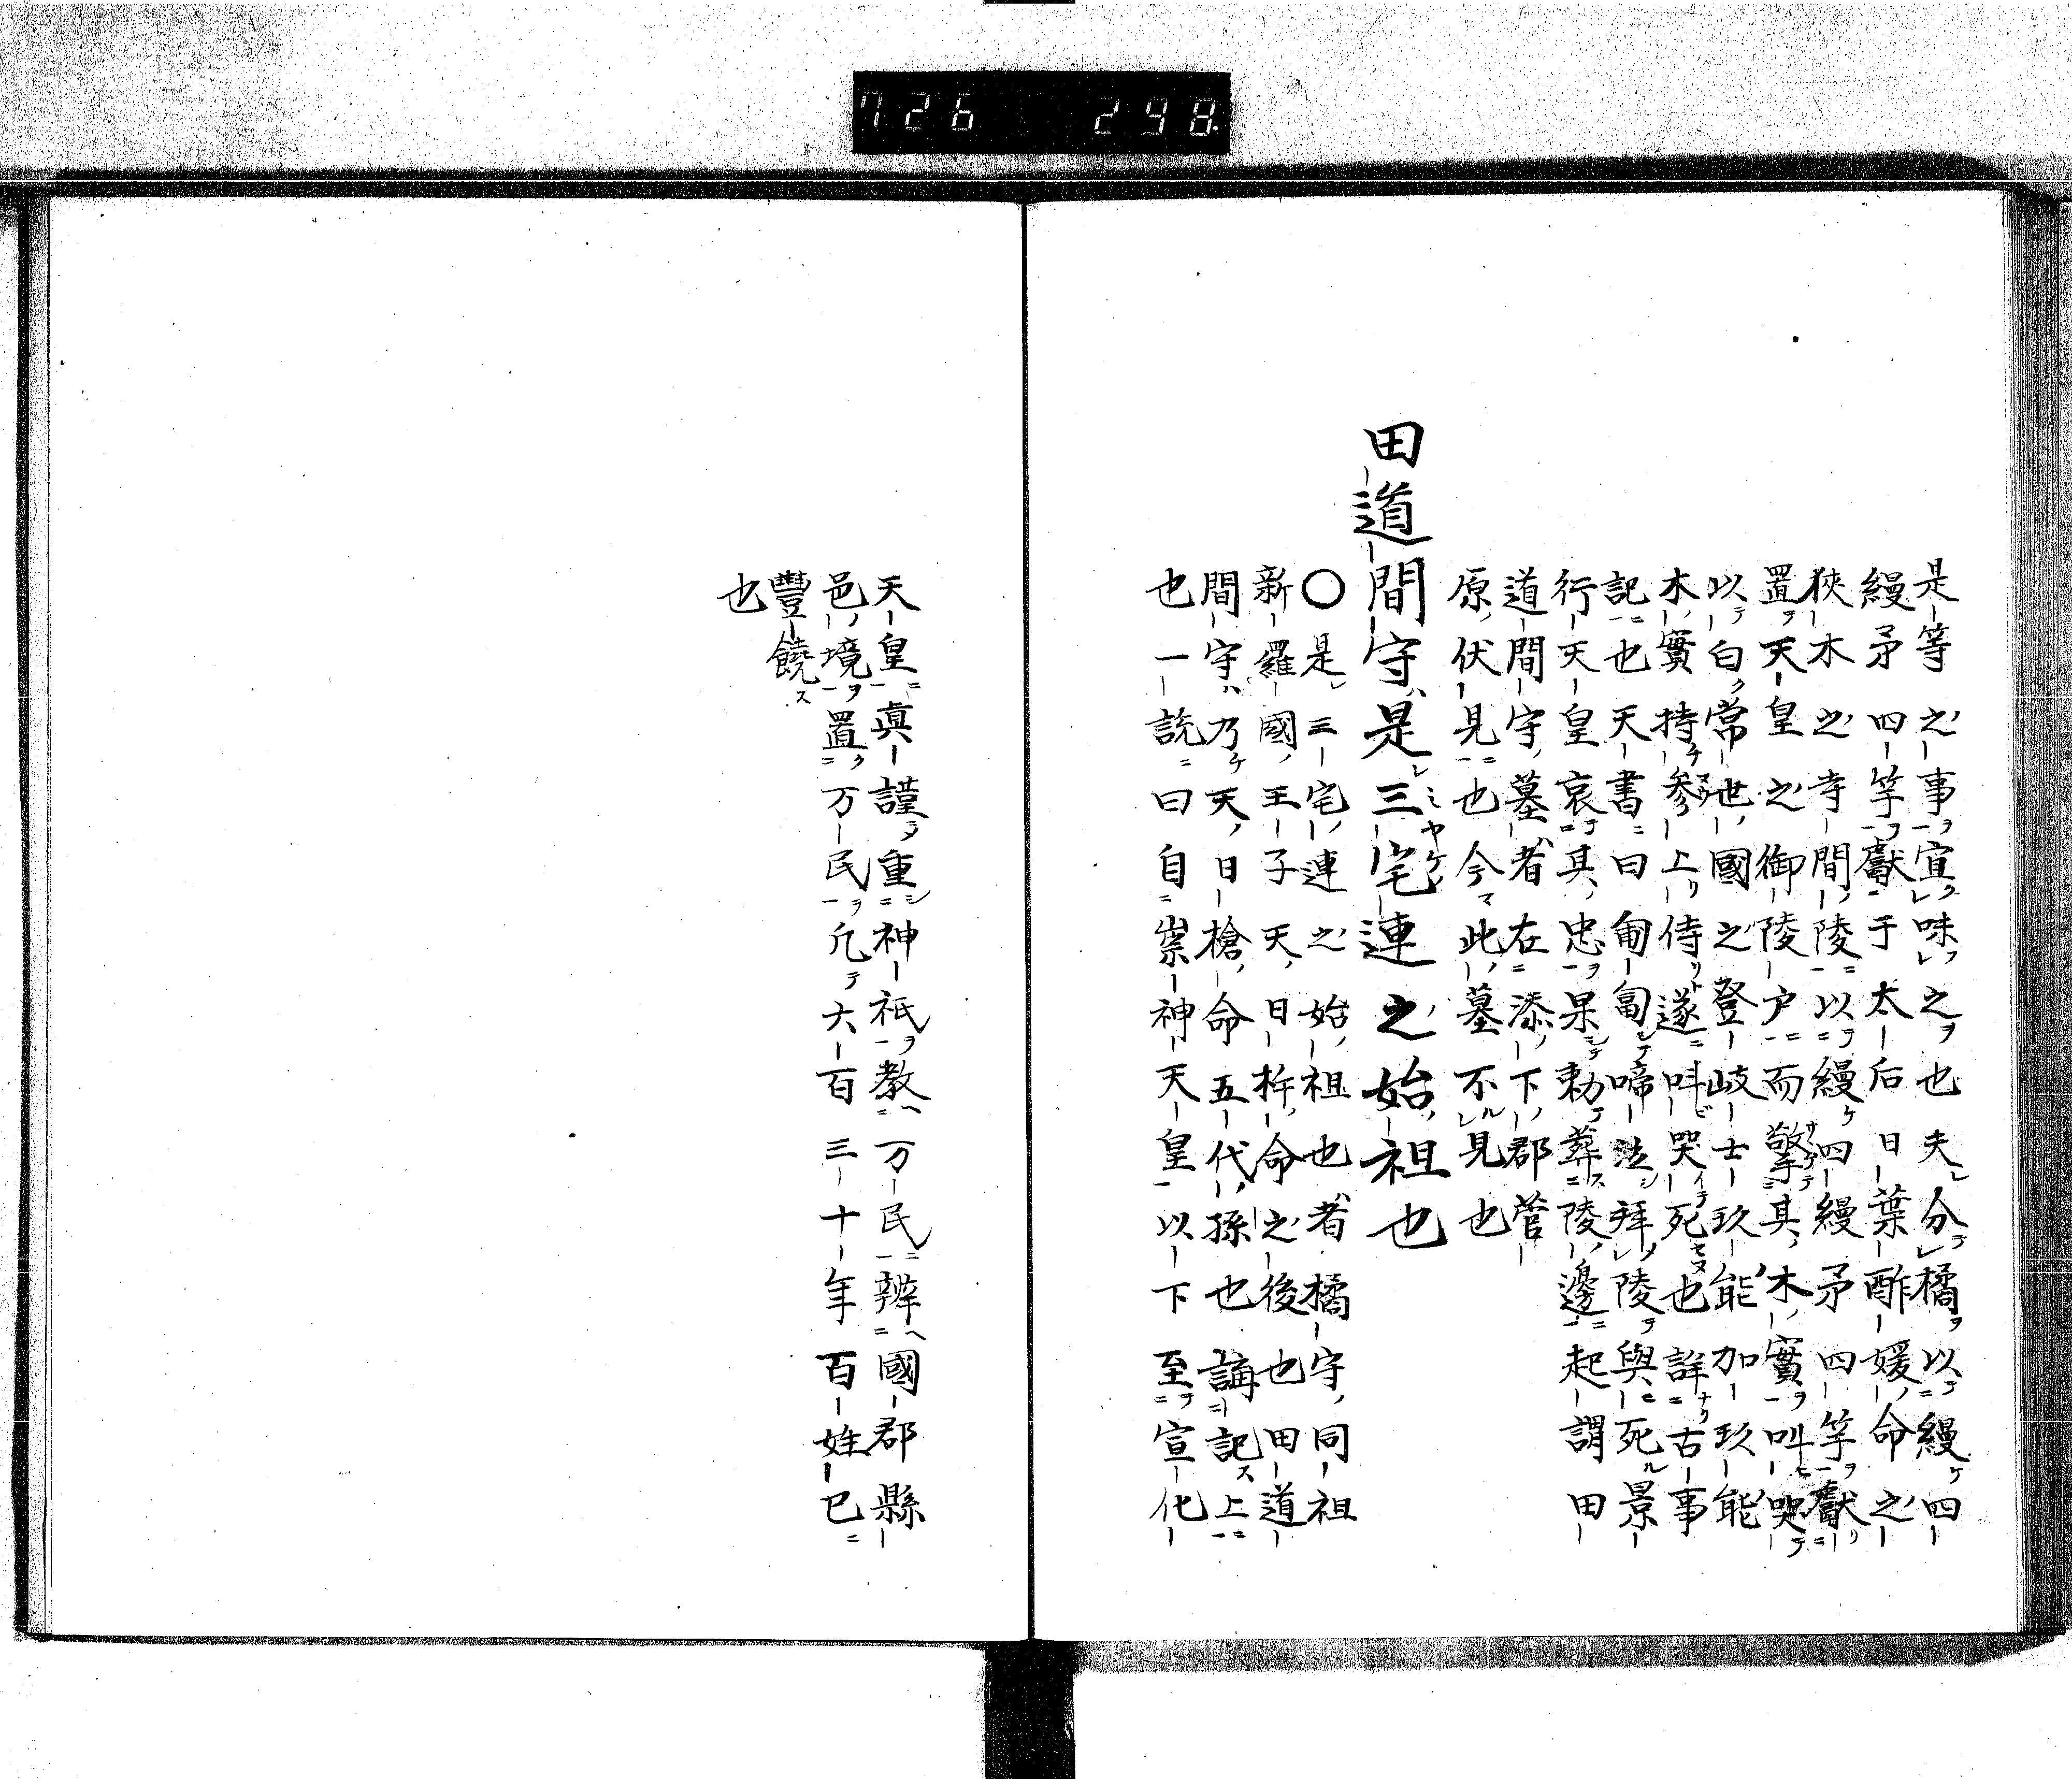 726 298
是等之事宣味之也夫分橘以縵四
縵矛四竿獻于太后日葉酢媛命之
狹木之寺間陵以縵四縵矛四竿獻
置天皇之御陵户而擎其木實叫哭
以白常世國之登岐士玖能加玖能
木實持參上侍遂叫哭死也詳古事
記也天書曰匍匐啼泣拜陵與死景
行天皇哀其忠果勅葬陵邊起謂田
道間守墓者在添下郡菅
原伏見也今此墓不見也
田道間守是三宅連之始祖也
〇是三宅連之始祖也者橘守同祖
新羅國王子天日桙命之後也田道
間守乃天日槍命五代孫也講記上
也一説曰自崇神天皇以下至宣化
天皇眞謹重神祇教万民辨國郡縣
邑境置万民凡六百三十年百姓已
豐饒
也